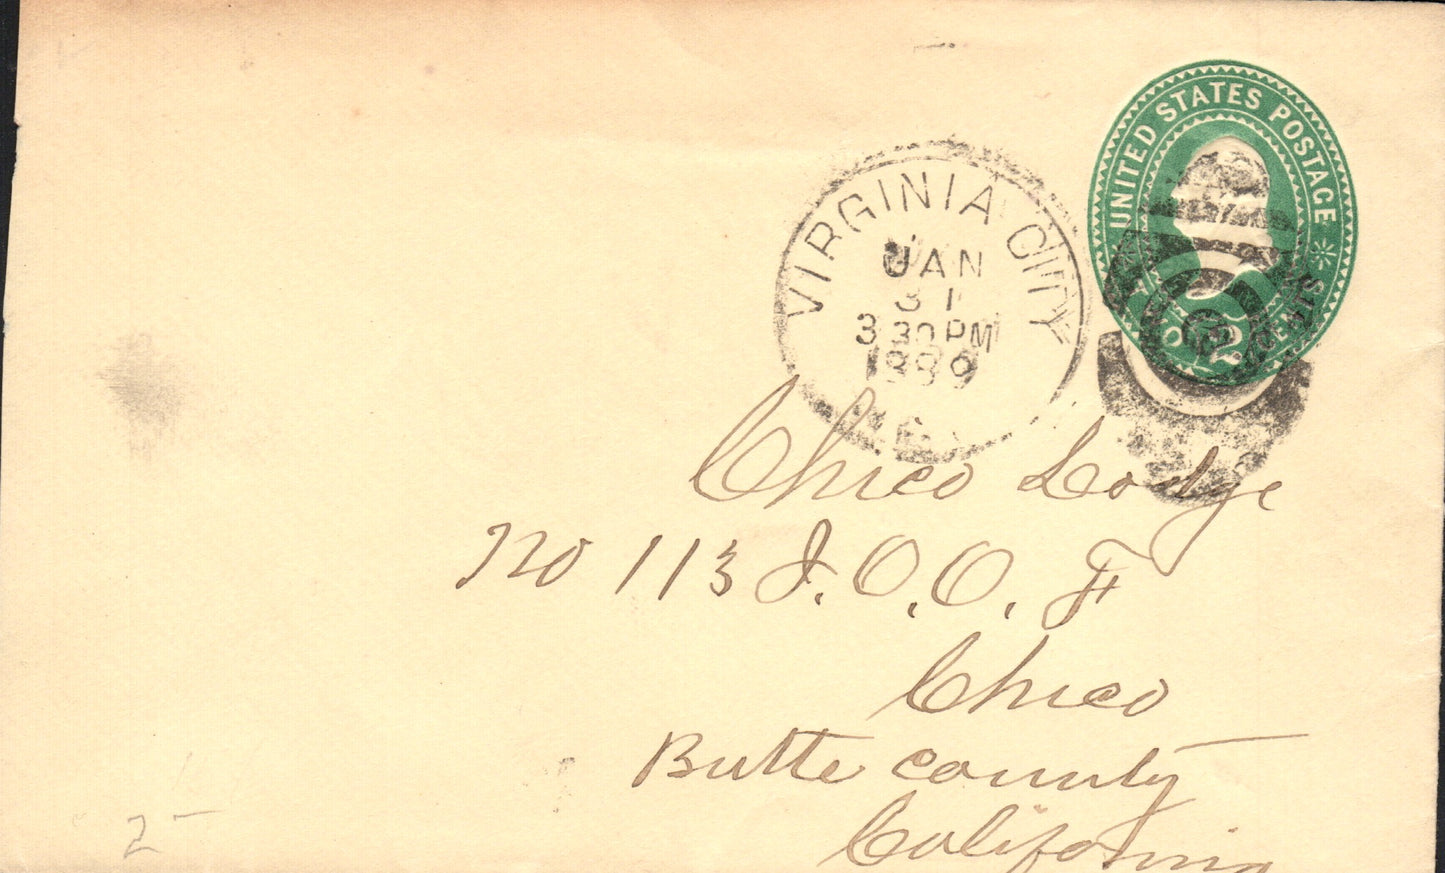 UNITED STATES POSTAGE
TWO 2 CENTS
VIRGINIA CITY
JAN
31
3 30 PM
1889
NEV.
Chico Lodge
No 113 I.O.O.F
Chico
Butte County
California
2-